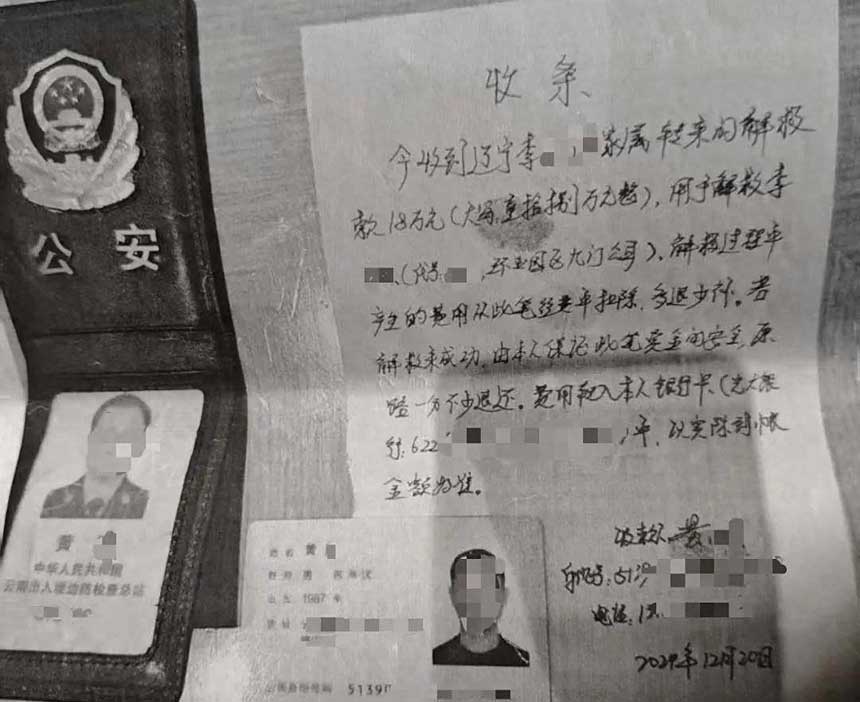 公安
收条
今收到辽宁李 家属转来的解救
款18万元(大写:壹拾捌万元整),用于解救李
(代号 ,环亚园区九门公司)。解救过程中
产生的费用从此笔经费中扣除,多退少补。若
解救未成功,由本人保证此笔资金的安全,原
路一分不少退还。费用转入本人银行卡(光大银
行:622 )中,以实际到帐
金额为准。
收款人:黄
身份证号:513
电话:1
2024年12月20日
黄
中华人民共和国
云南出入境边防检查总站
姓名 黄
性别 男 民族 汉
出生 1987年
住址 云
公民身份号码 5139